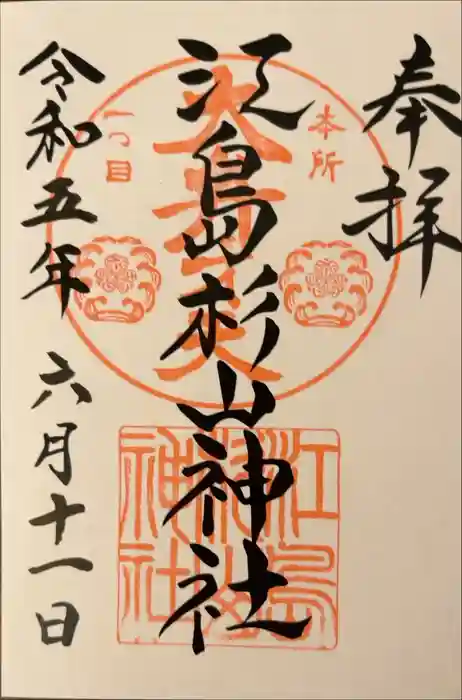 奉拝
本所
一つ目
江島杉山神社
江島杉山神社
令和五年 六月十一日